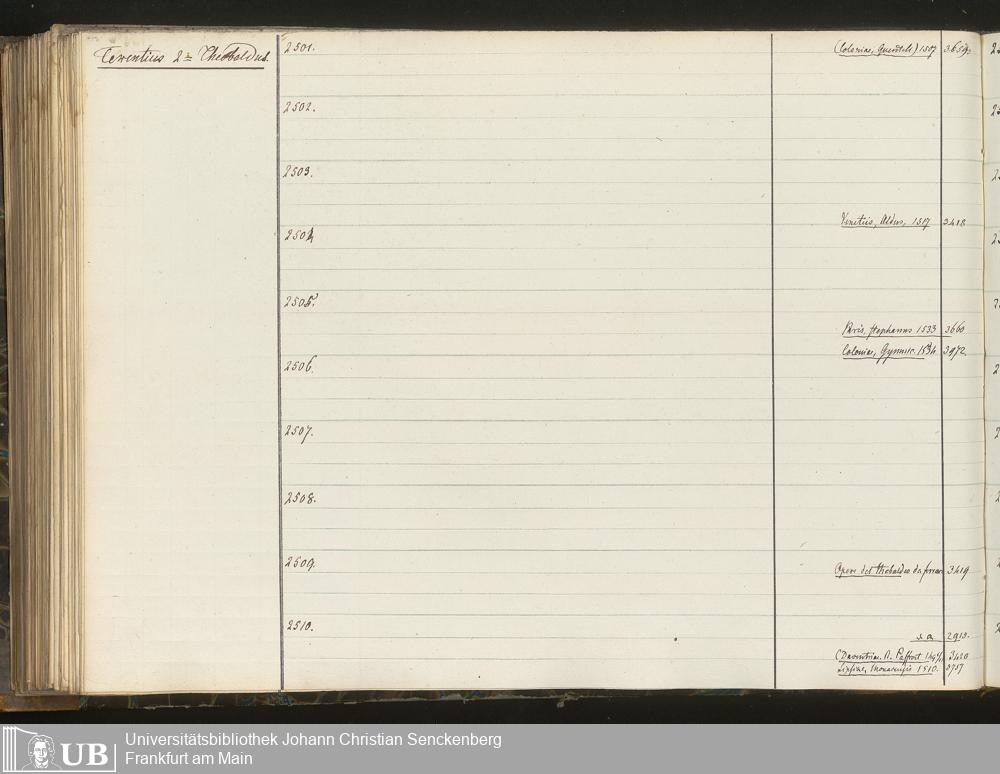 Terentius 2 = Theobaldus.
2501.
(Coloniae, Quentell) 1507 3659.
2502.
2503.
Venetiis, Aldus, 1517 3418
2504
2505.
Paris, Stephanus 1533 3660
Coloniae, Gymnic. 1534. 3972.
2506.
2507.
2508.
2509.
Opere del thebaldeo da 3419
2510.
s. a. 2913.
(Daventriae. R. Paffroet 3420
Lipsiae, Monacensis 1510. 3757
Universitätsbibliothek Johann Christian Senckenberg
Frankfurt am Main
UB